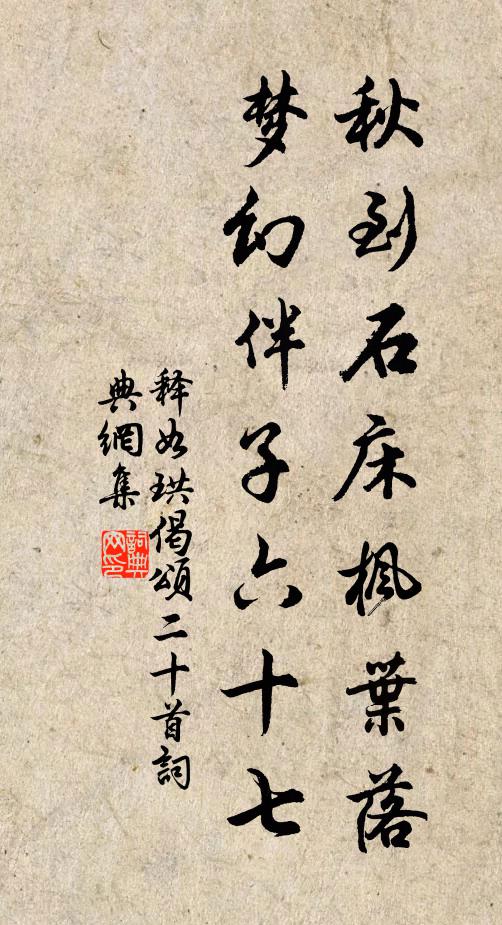 秋到石床枫葉落
梦幻伴子六十七
释如珙偈頌二十首詞
典網集
詞典
网印